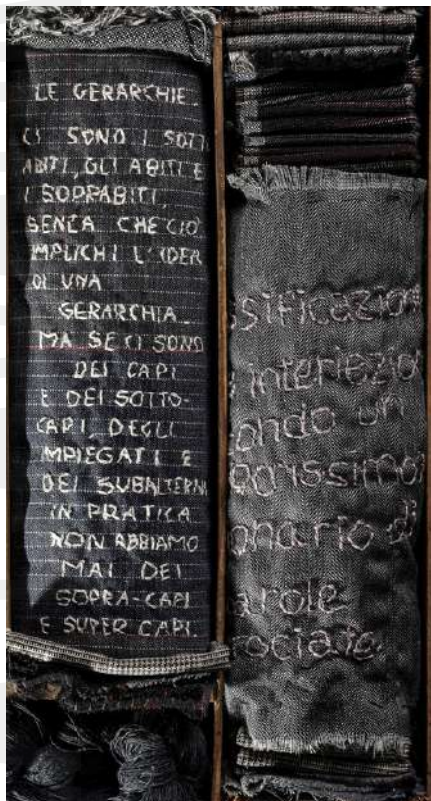 LE GERARCHIE.
CI SONO I SOTT
ABITI, GLI ABITI E
I SOPRABITI,
SENZA CHE CIÒ
IMPLICHI L'IDEA
DI UNA
GERARCHIA.
MA SE CI SONO
DEI CAPI
E DEI SOTTO-
CAPI, DEGLI
IMPIEGATI E
DEI SUBALTERNI
IN PRATICA
NON ABBIAMO
MAI DEI
SOPRA-CAPI
E SUPER CAPI.
ssificazion
interiezio
ondo un
porissimo
onario di
arole
rociate